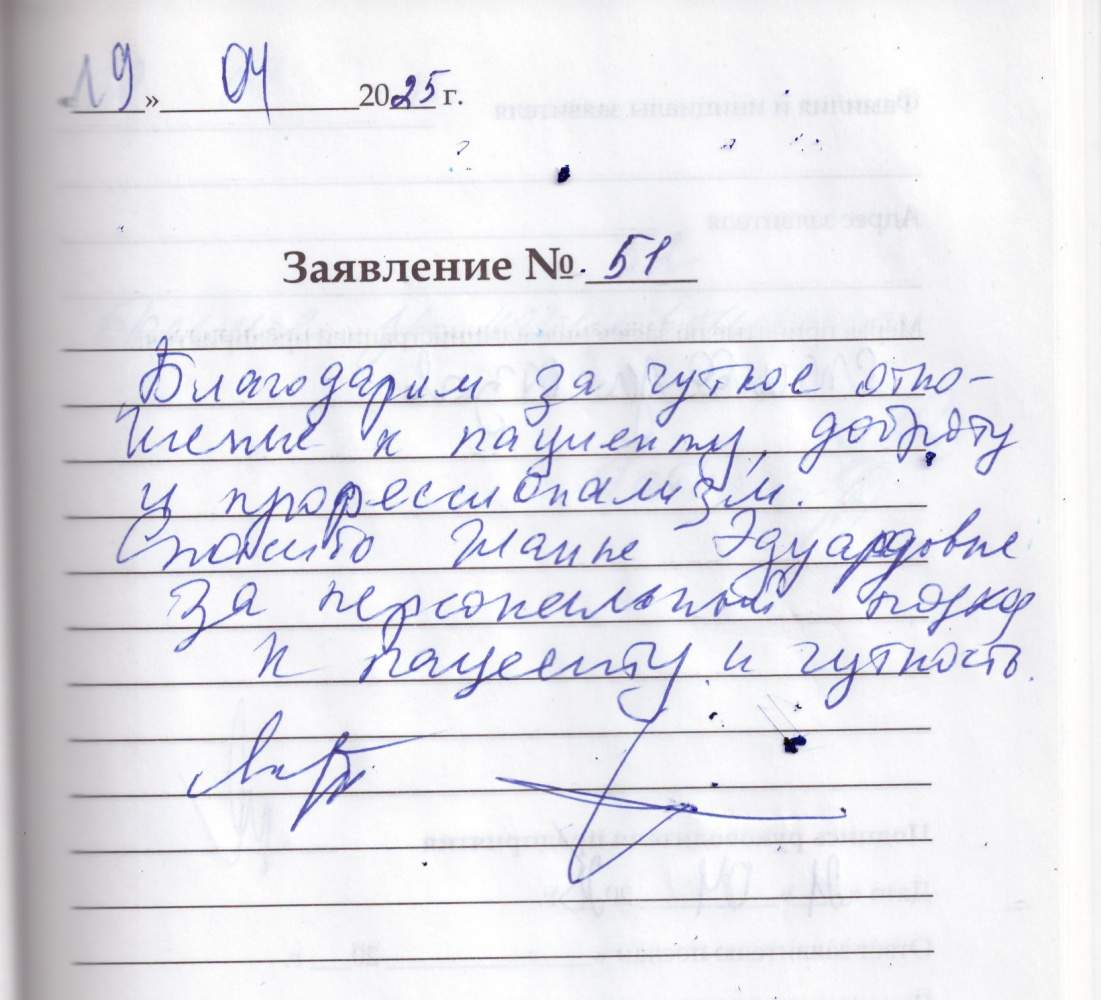 19 » 04 2025 г.
Заявление № 51
Благодарим за чуткое отно-
шение к пациенту, доброту
и профессионализм.
Спасибо Жанне Эдуардовне
за персональный подход
к пациенту и чуткость.